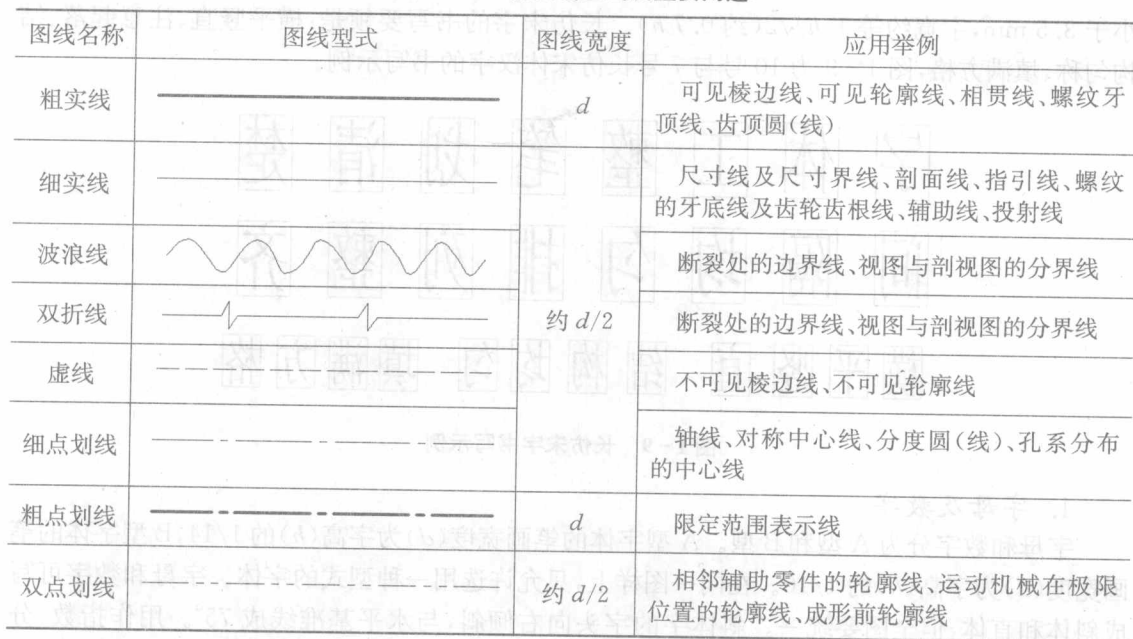 小于3.5 mm,
图线名称 图线型式 图线宽度 应用举例
粗实线 d 可见棱边线、可见轮廓线、相贯线、螺纹牙
顶线、齿顶圆(线)
细实线 尺寸线及尺寸界线、剖面线、指引线、螺纹
的牙底线及齿轮齿根线、辅助线、投射线
波浪线 断裂处的边界线、视图与剖视图的分界线
双折线 约 d/2 断裂处的边界线、视图与剖视图的分界线
虚线 不可见棱边线、不可见轮廓线
细点划线 轴线、对称中心线、分度圆(线)、孔系分布
的中心线
粗点划线 d 限定范围表示线
双点划线 约 d/2 相邻辅助零件的轮廓线、运动机械在极限
位置的轮廓线、成形前轮廓线